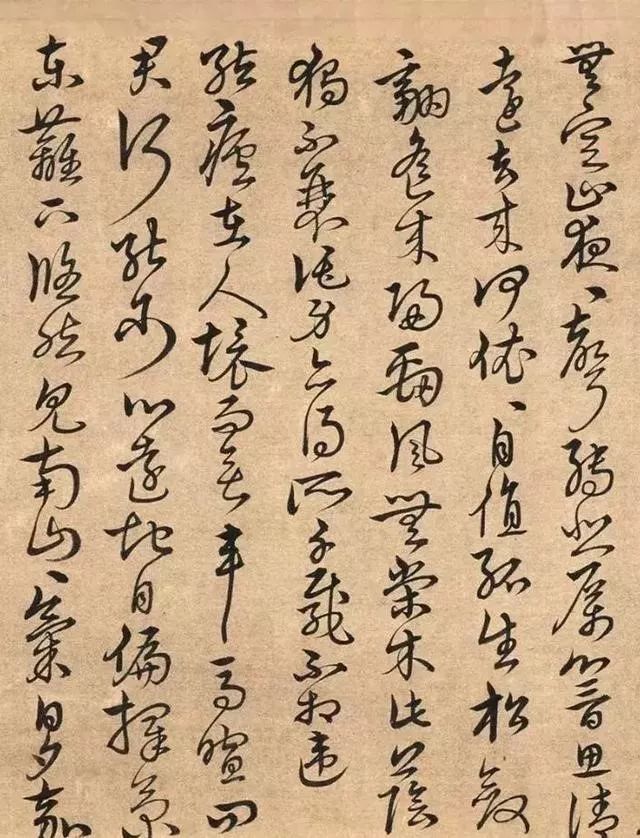 無定止夜〻聲轉悲厲響思清
遠去來何依〻自值孤生松斂
翮遙來歸勁風無榮木此蔭
獨不衰託身已得所千載不相違
結廬在人境而無車馬喧問
君何能爾心遠地自偏採菊
東籬下悠然見南山〻氣日夕嘉